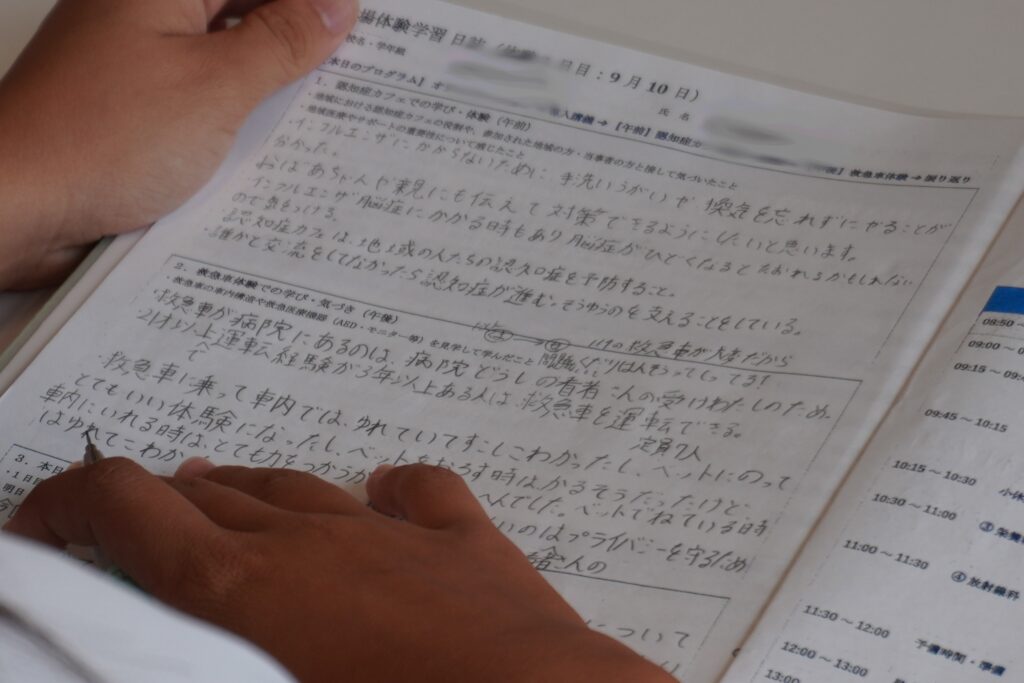 場体験学習 日誌 日目：9月10日）
校名・学年組 氏 名
【本日のプログラム】オ 入講義 → 【午前】認知症カ 】救急車体験 → 振り返り
1．認知症カフェでの学び・体験（午前）
・地域における認知症カフェの役割や、参加された地域の方・当事者の方と接して気づいたこと
・地域医療やサポートの重要性について感じたこと
・インフルエンザにかからないために、手洗いうがいや換気を忘れずにやることが
分かった。
おばあちゃんや親にも伝えて対策できるようにしたいと思います。
・インフルエンザ脳症にかかる時もあり脳症がひどくなるとたおれるかもしれない
ので気をつける。
・認知症カフェは、地域の人たちの認知症を予防すること。
・誰かと交流をしてなかったら認知症が進む。そうゆうのを支えることをしている。
2．救急車体験での学び・気づき（午後）
救急車の車内構造や救急医療機器（AED・モニター等）を見学して学んだこと
119の救急車が大事だから
・救急車が病院にあるのは、病院どうしの患者さんの受けわたしのため。
・21才以上で運転経験が3年以上ある人は、救急車を運転できる。
定員7人
・救急車に乗って車内では、ゆれていてすこしこわかったし、ベットにのって
とてもいい体験になったし、ベットをおろす時はかるそうだったけど、
車内にいれる時は、とても力をつかうか へんでした。ベットでねている時
はゆれてこわか いのはプライバシーを守るため
者さんの
3．本日
・1日目
明日
今日 について
08:50 ～
09:00 ～
09:15 ～
09:45 ～ 10:15
10:15 ～ 10:30 小休
10:30 ～ 11:00 ③栄養
11:00 ～ 11:30 ④放射線科
11:30 ～ 12:00 予備時間・準備
12:00 ～ 13:00
13:00